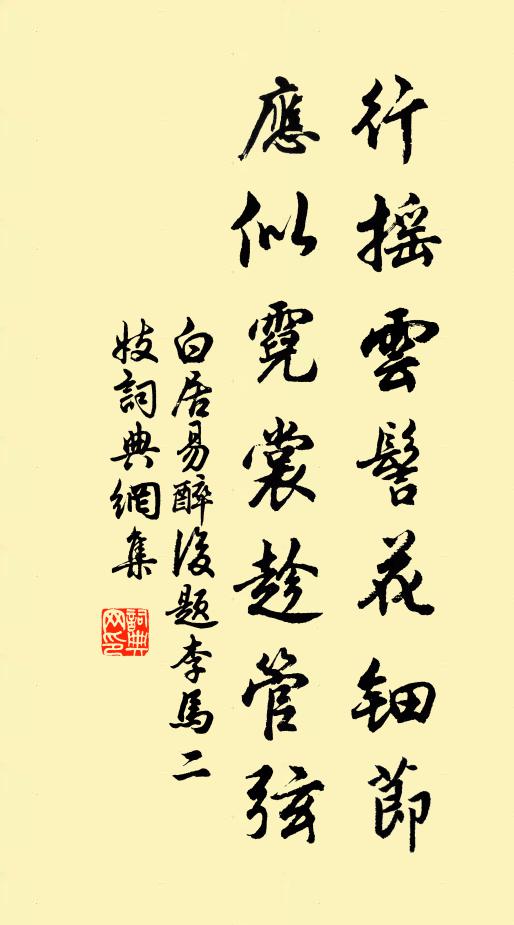 行摇雲髻花钿節
應似霓裳趁管弦
白居易醉後題李馬二
妓詞典網集
詞典
网印